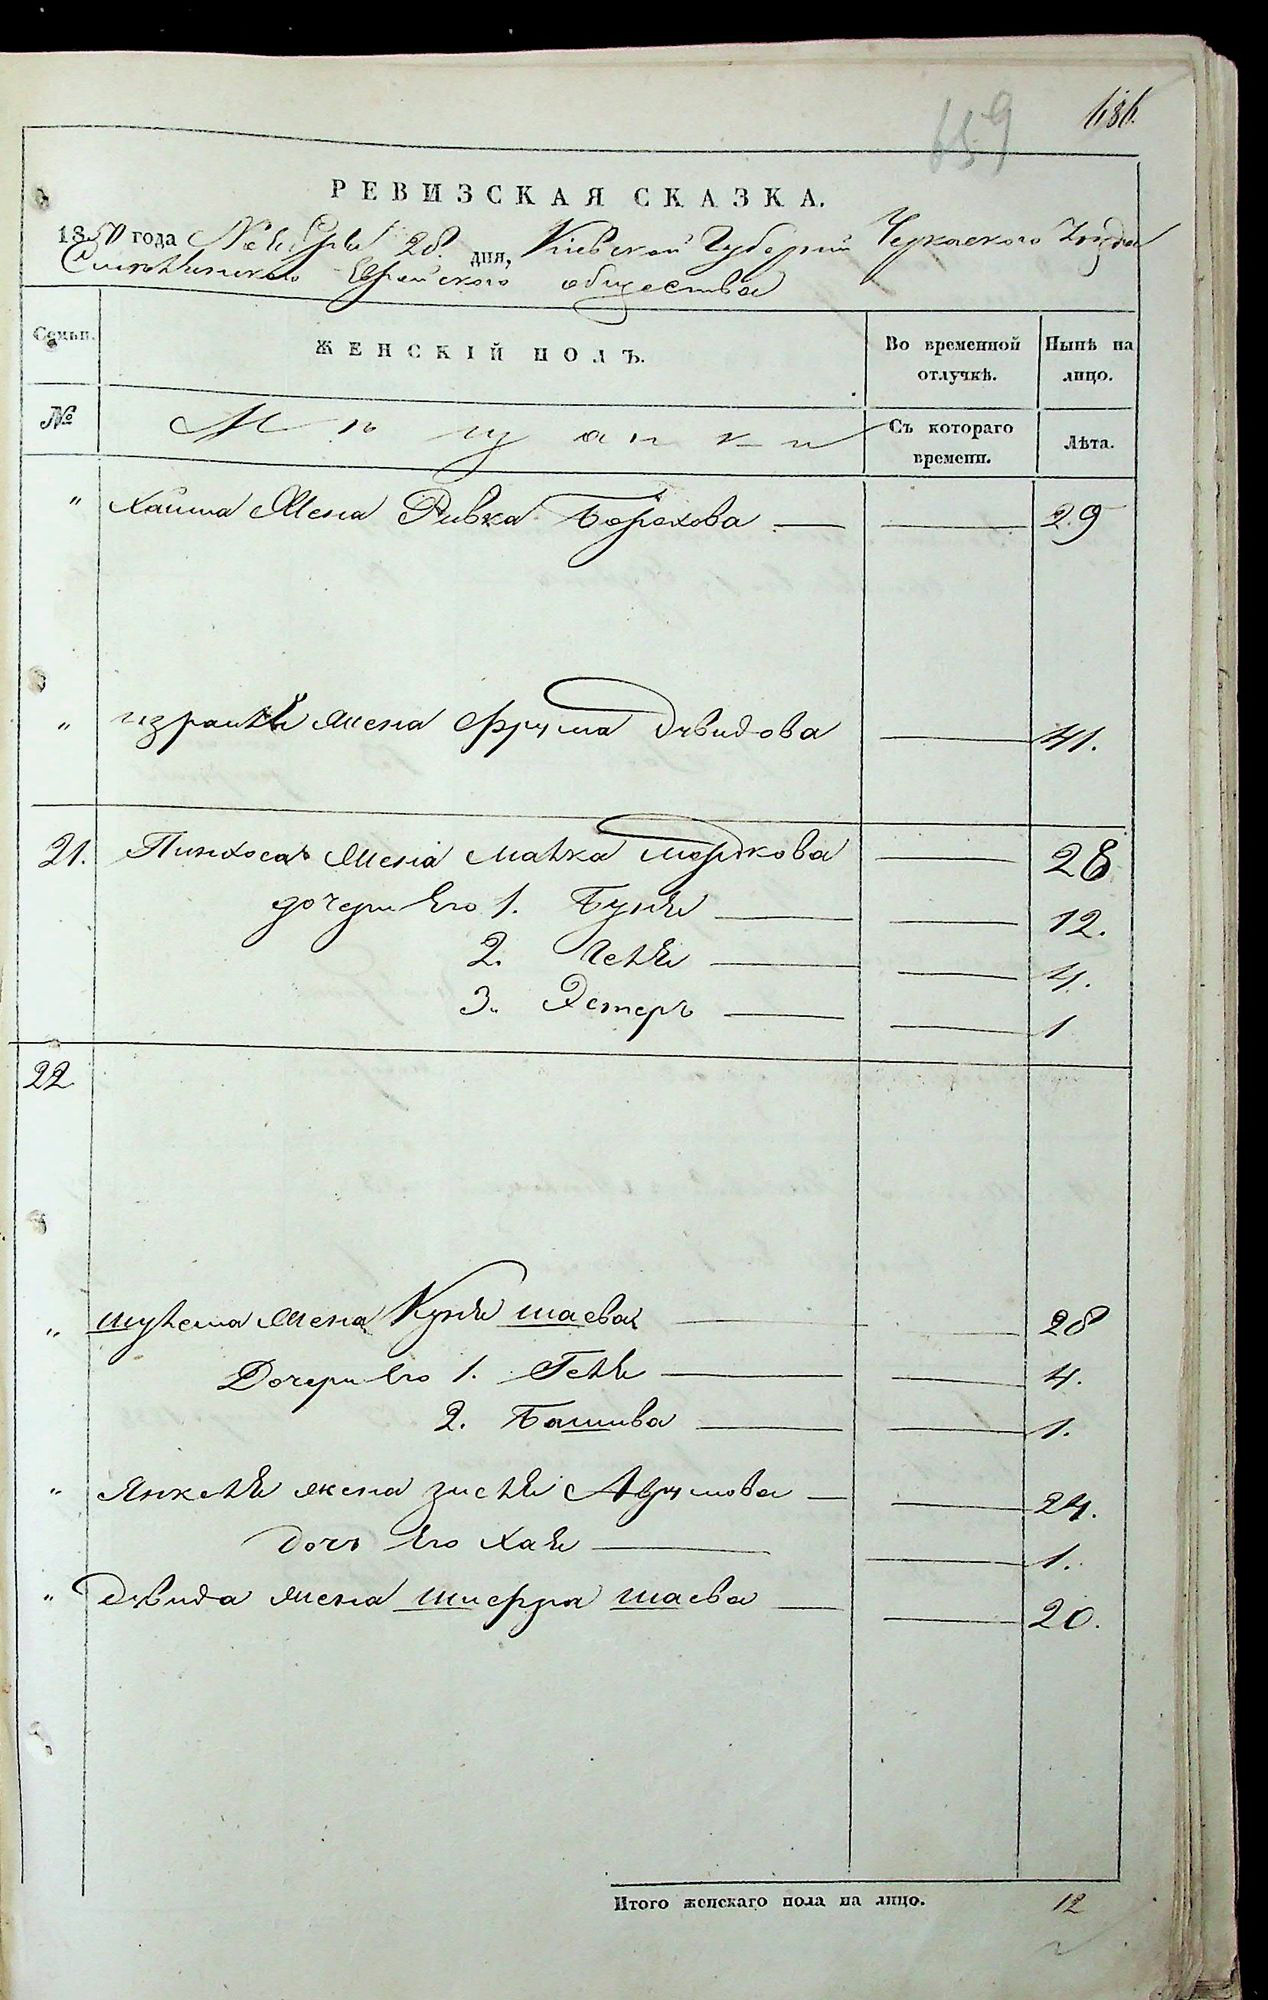 686.
659
РЕВИЗСКАЯ СКАЗКА.
1850 года Ноября 28. дня, Кіевской Губерніи Черкаского Уѣзда
Смѣлянскаго Еврейского общества
Семьи. ЖЕНСКІЙ ПОЛЪ. Во временной отлучкѣ. Нынѣ на лицо.
№ Мѣщанки Съ котораго времени. Лѣта.
" Хаима Жена Ривка Берехова — — 29
" израиля жена Фрума Дувидова — 41.
21. Пинхоса Жена Малка мордкова — 28
дочери Его 1. Буня — — 12.
2. Челя — — 4.
3. Эстеръ — — 1
22
" шулема Жена Куня шаева — — 28
Дочери Его 1. Геля — — 4.
2. Башива — — 1.
" Янкеля жена зисля Аврумова — — 24.
дочь Его Хая — — 1.
" Дувида жена шифра шаева — — 20.
Итого женскаго пола на лицо. 12